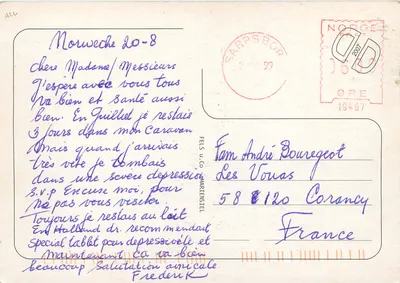 Norweche 20-8
Chere Madame/Messieurs
J'espère avec vous tous
va bien et santé aussi
bien. En Guilled je restais
3 jours dans mon Caravan
Mais quand j'arrivais
très vite je tombais
dans une sevère depression
s.v.p Excuse moi, pour
ne pas vous visiter.
Toujours je restais au lait
En Holland dr. recommandait
special tablet pour depressivèle et
maintenant ça va bien
beaucoup Salutation amicale
Frederik
FELS u. Co
SARPSBORG
NORGE
2007
ØRE
Fam André Bouregeot
Les Vouas
58120 Corancy
France